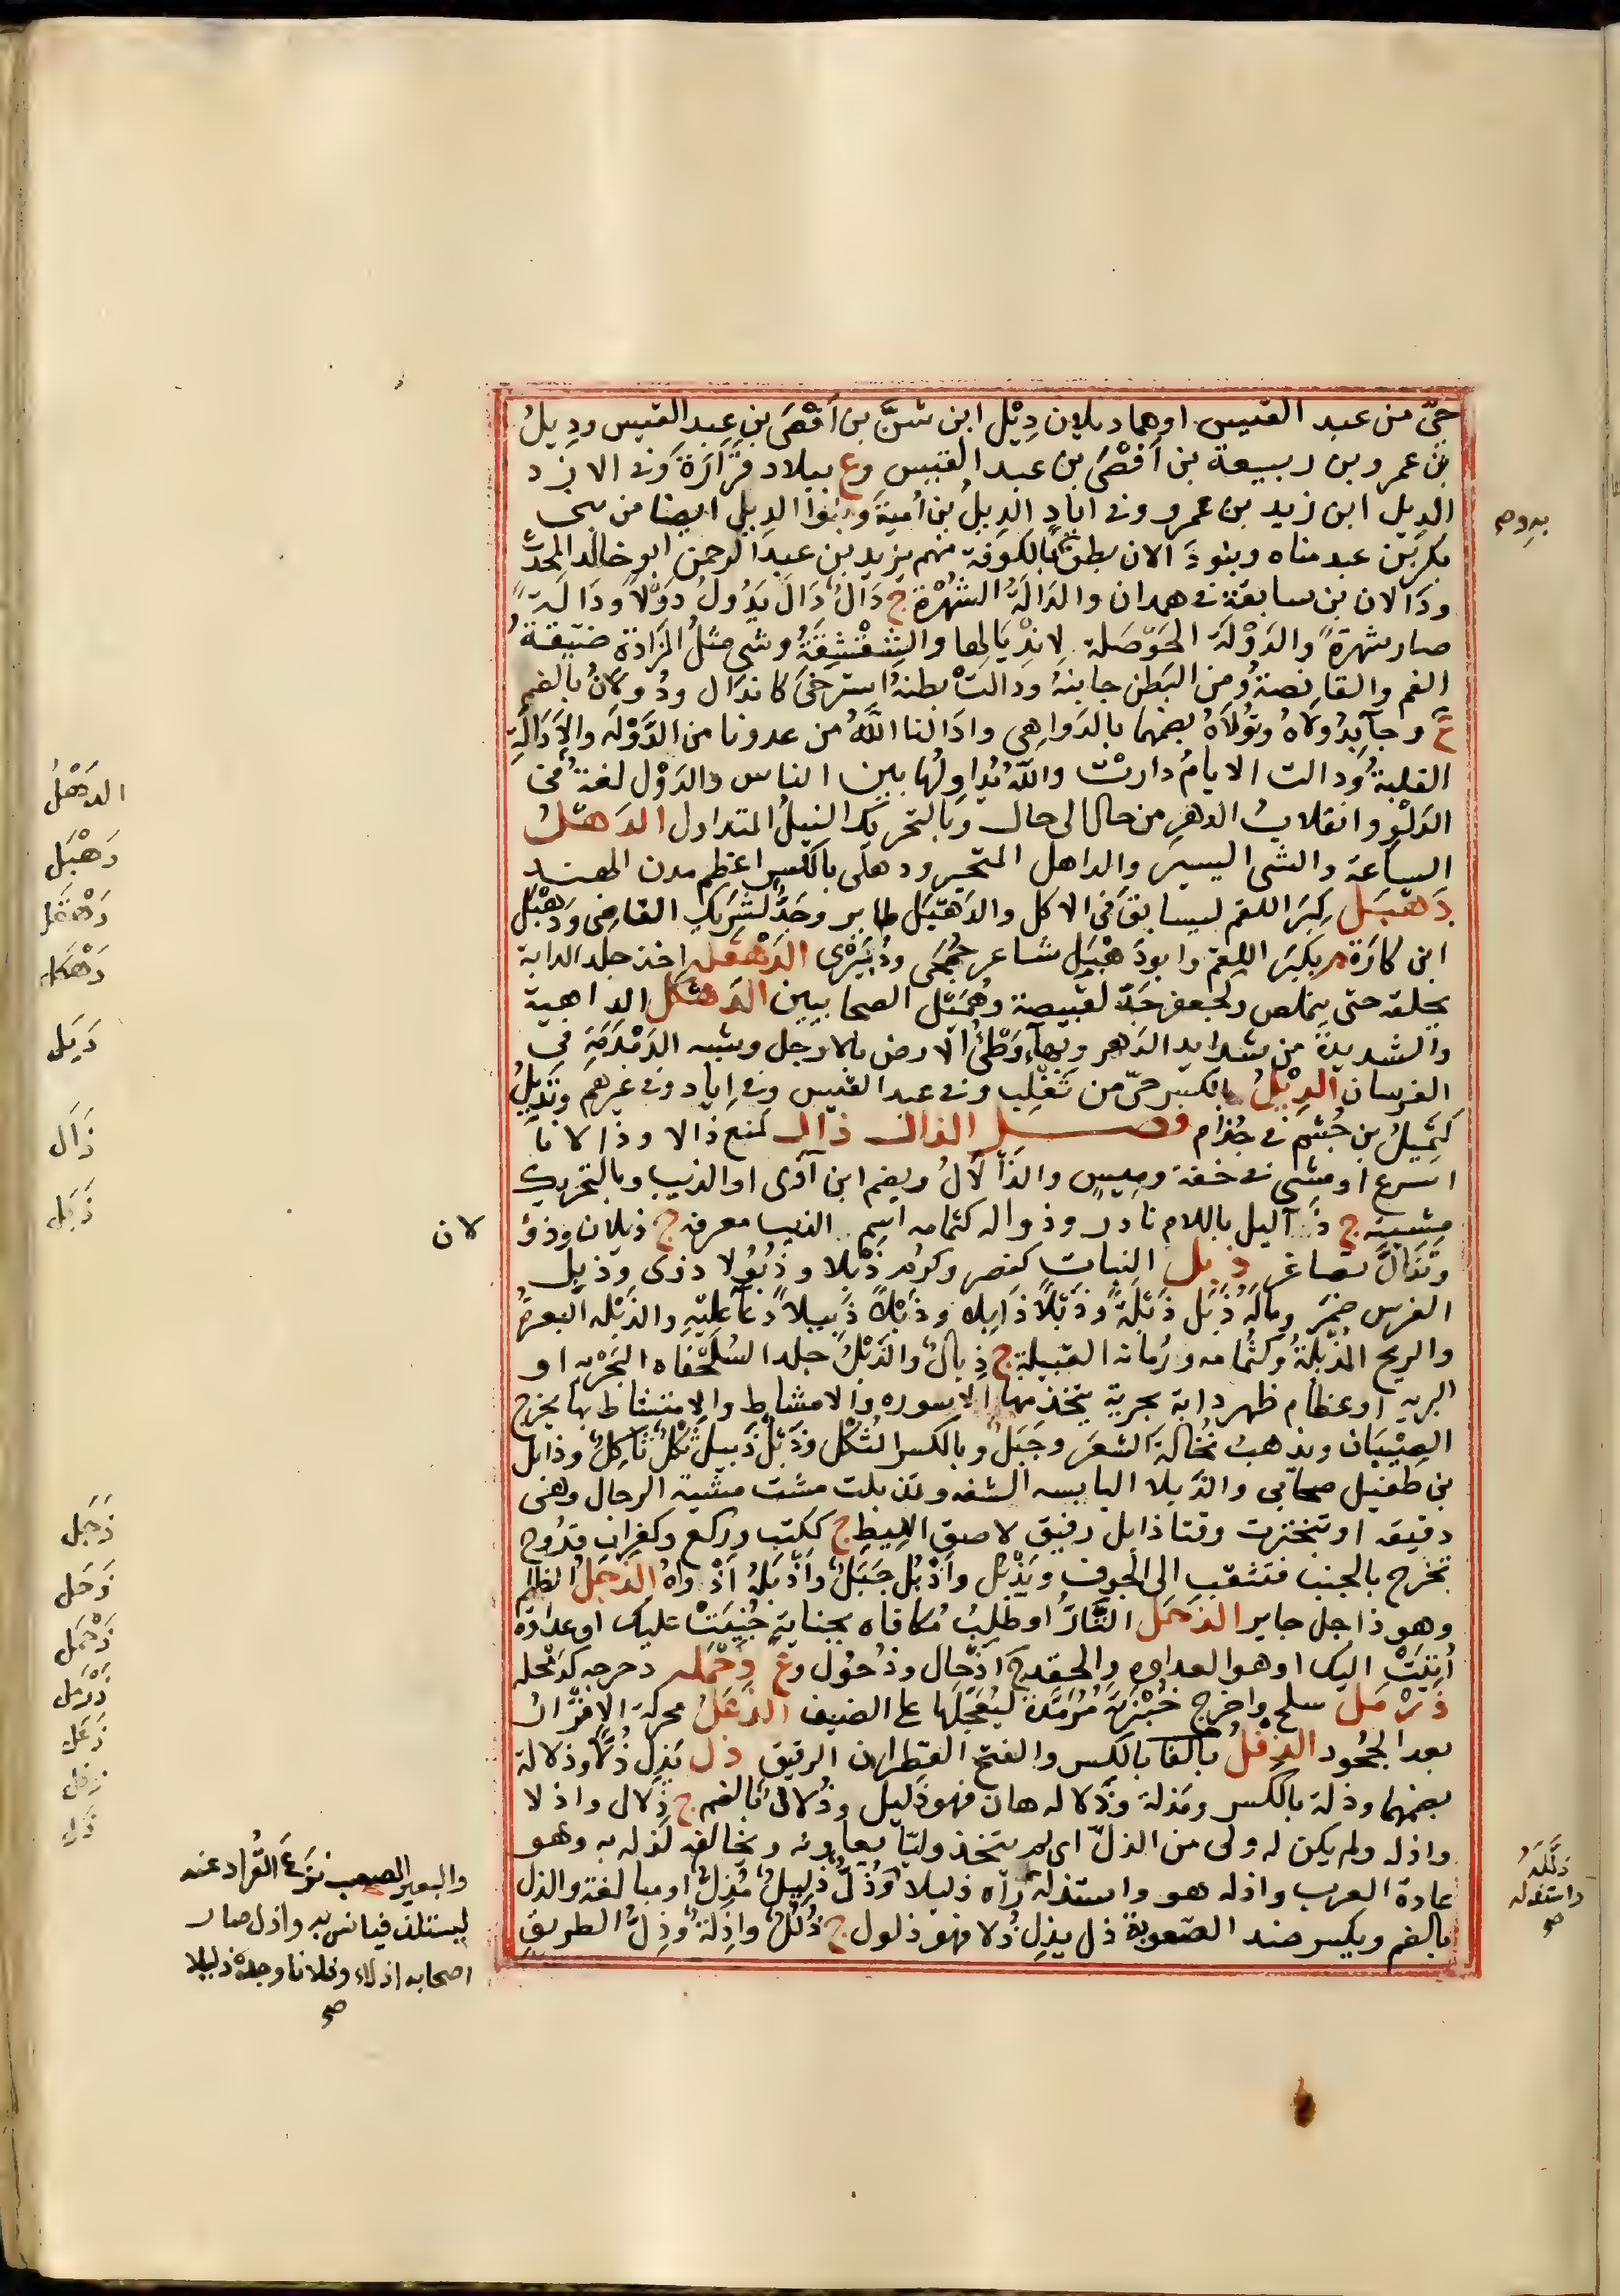 حيّ من عبد القيس او هما ديلان دِيْل ابن شنّ بن اَفْصَى بن عبد القيس ودِيلُ
بن عمرو بن ربيعة بن اَفْصَى بن عبد القيس وع ببلاد فَزَارَة وفى الازد
الدِيل ابن زيد بن عمرو وفى اياد الدِيلُ بن اُمية وبنوا الديل ايضا من بنى
بكر بن عبد مناه وبنو دَالان بطن بالكوفة منهم يزيد بن عبد الرحمن ابو خالد المحدّث
ودَالان بن سابقة فى همدان والدَالَةُ الشُهْرَة ج دَالٌ دَالَ يَدُولُ دَوْلاً ودَالَةً
صار شهرَةً والدَوْلَة الحَوْصَلة لانْدِيَالِها والشِقْشِقَةُ وشى مثلُ المَزَادَة ضيّقةُ
الفم والقانصة ومن البَطن جانبهُ ودالتْ بطنهُ استرخىَ كاندَال ودُولانُ بالضم
ع وجآ بدُولاهُ وتُوْلاَهُ بضمهما بالدَواهى وادَالنا اللّهُ من عدونا من الدَّوْلَه والاِدَالَةِ
الغلبةُ ودالت الايامُ دارتْ واللّه يُداوِلُها بين الناس والدَوْل لغةٌ فى
الدَلْوِ وانقلابُ الدهرِ من حال الى حال وبالتحريك النبلُ المتداول الدَهْلُ
الساعة والشى اليسيرَ والداهل المتحير ودهلى بالكسر اعظم مدن الهند
دَهْبَل كبَرَ اللقم ليسابقَ فى الاكل والدَهْبَل طاير وجَدٌ لشَرِيكِ القاضِى ودَهْبَل
ابن كارَة م يكبَر اللقم وابو دَهْبَل شاعر جُمَحى ودُبَيْرى الدَهْقله اخذ جلد الدابة
بحلقه حتى يملص ولجعفر جَدّ لقبيصة وهُمَيْل الصحابيين الدَهْكَل الداهية
والشديدة من شدايد الدَهر وبهآءٍ وَطْئُ الارض بالارجل وشبه الدَمْدَمَةِ فى
الفرسان الدِيْلُ بالكسر حىّ من تَغْلِب وفى عبد القيس وفى اِياد وفى غيرهم وتَدْيِلُ
كَتَمِيلُ بن جُشَم فى جُذام فصل الذال ذآل كمنع ذالا وذالانا
اسرع او مشى فى خفة وميسٍ والذَأْلَانُ ويضم ابن آوَى او الذيب وبالتحريك
مشيته ج ذآليل باللام نادر وذواله كثمامه اسم الذيب معرفه ج ذيلان وذؤ
لان
وتذآل تصاغر ذبل النبات كنصر وكرُم ذَبْلا وذُبُولا ذوَى وذبل
الفرس ضمَر وماله ذُبَل ذَبْلهُ وذَبْلاً ذابِلا وذَبْلاً ذَبيلاً دعآ عليه والذَبْله البعرَةُ
والريح المُذْبِلَةُ وكثُمامه ورُمانه الفتيلة ج ذِبالٌ والذَبْلُ جلد السُلَحْفاه البَحْريه او
البريه او عظام ظهر دابة بحرية يتخذ منها الاسوره والامشاط والامتشاط بها يخرج
الصِئْبَان ويذهبُ نُخالة الشعَر وجَبَلٌ وبالكسر الثُكْل وذَبْلٌ ذَبيل ثكل ثاكلٌ وذابل
بن طفيل صحابى والذَبلا اليابسه الشفه وتذبلت مشت مشية الرجال وهى
دقيقه او تبخترت وقنا ذابل دقيق لاصق الليط ج ككتب وركع وكغراب قُروح
تخرج بالجنب فتثقب الى الجوف ويَذْبُل واَذْبُل جَبَلٌ واَذْبَلَهُ اَذْواهُ الذَجْلُ الظلم
وهو ذاجل جاير الذَحْل الثَّارُ او طلبُ مُكافاه بجناية جُنِيَتْ عليك او عداوة
اُتِيَتْ اليك او هو العداوه والحقد ج اَذْحال وذُحُول وع ذَحْمَله دحرجه كذَمْحَله
ذَرْمَل سلح واخرج خُبْزتَهُ مُرَمَّدَةً ليُعَجِّلَها على الضيف الذَعَلُ محركة الاِقْرارُ
بعد الجحُود الذِفْلُ بالفا بالكسر والفتح القطران الرقيق ذل يَذِل ذُلاّ وذلالة
بضمهما وذلة بالكسر ومذلة وذَلاله هان فهو ذَليل وذُلانٌ بالضم ج ذِلال واذلا
واذله ولم يكن له ولى من الذلّ اى لم يتخذ وليّا يعاونه ويخالفه لذله به وهو
عادة العرب واذله هو واستذله رآه ذليلا وَذُلٌّ ذليلٌ مُذِلٌّ او مبالغة والذل
بالضم ويكسر ضد الصعوبة ذل يذِل ذُلا فهو ذلول ج ذُلُلٌ واذِلَّةٌ وذِلُّ الطريق
الدَهْلُ
دَهْبَل
دَهْقَل
دَهْكَل
دَيَل
ذَآل
ذَبَل
ذَجَل
ذَحَل
ذَحْمَل
ذَرْمَل
ذَعَل
ذفل
ذَل
ذَلَّلَهُ
واستذله
صح
والبعير الصعب نزَعَ القُراد عنه
ليستلذ فيانس به واذل صار
اصحابه اذلاء وفلانا وجده ذليلا
صح